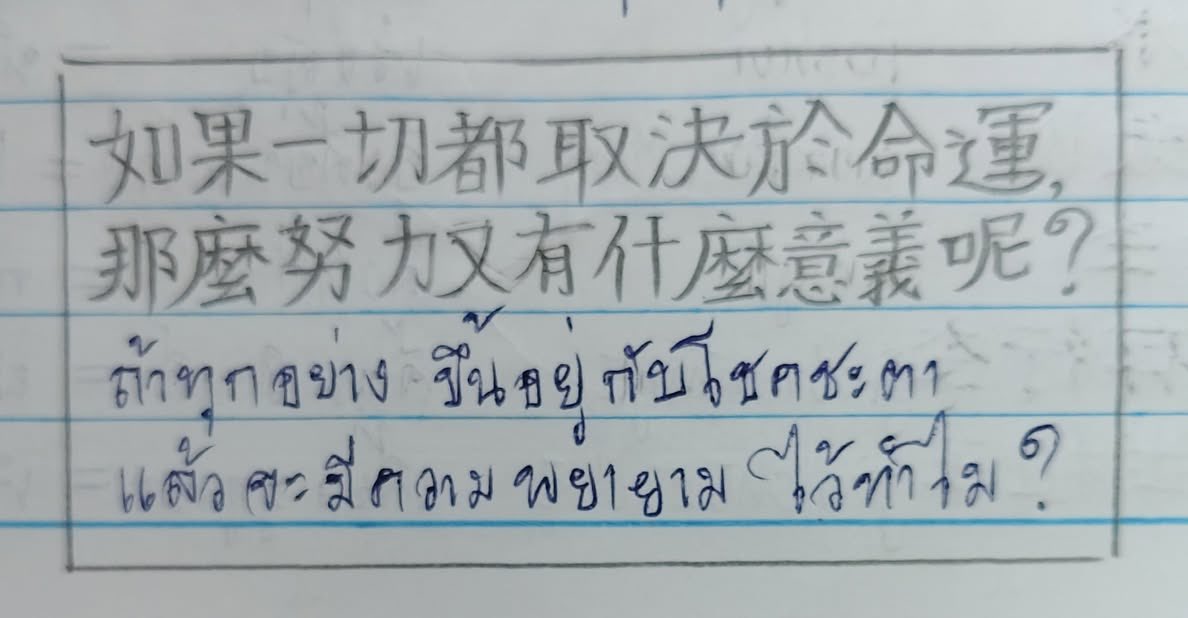 如果一切都取決於命運,
那麼努力又有什麼意義呢?
ถ้าทุกอย่าง ขึ้นอยู่กับโชคชะตา
แล้วจะมีความพยายามไว้ทำไม?